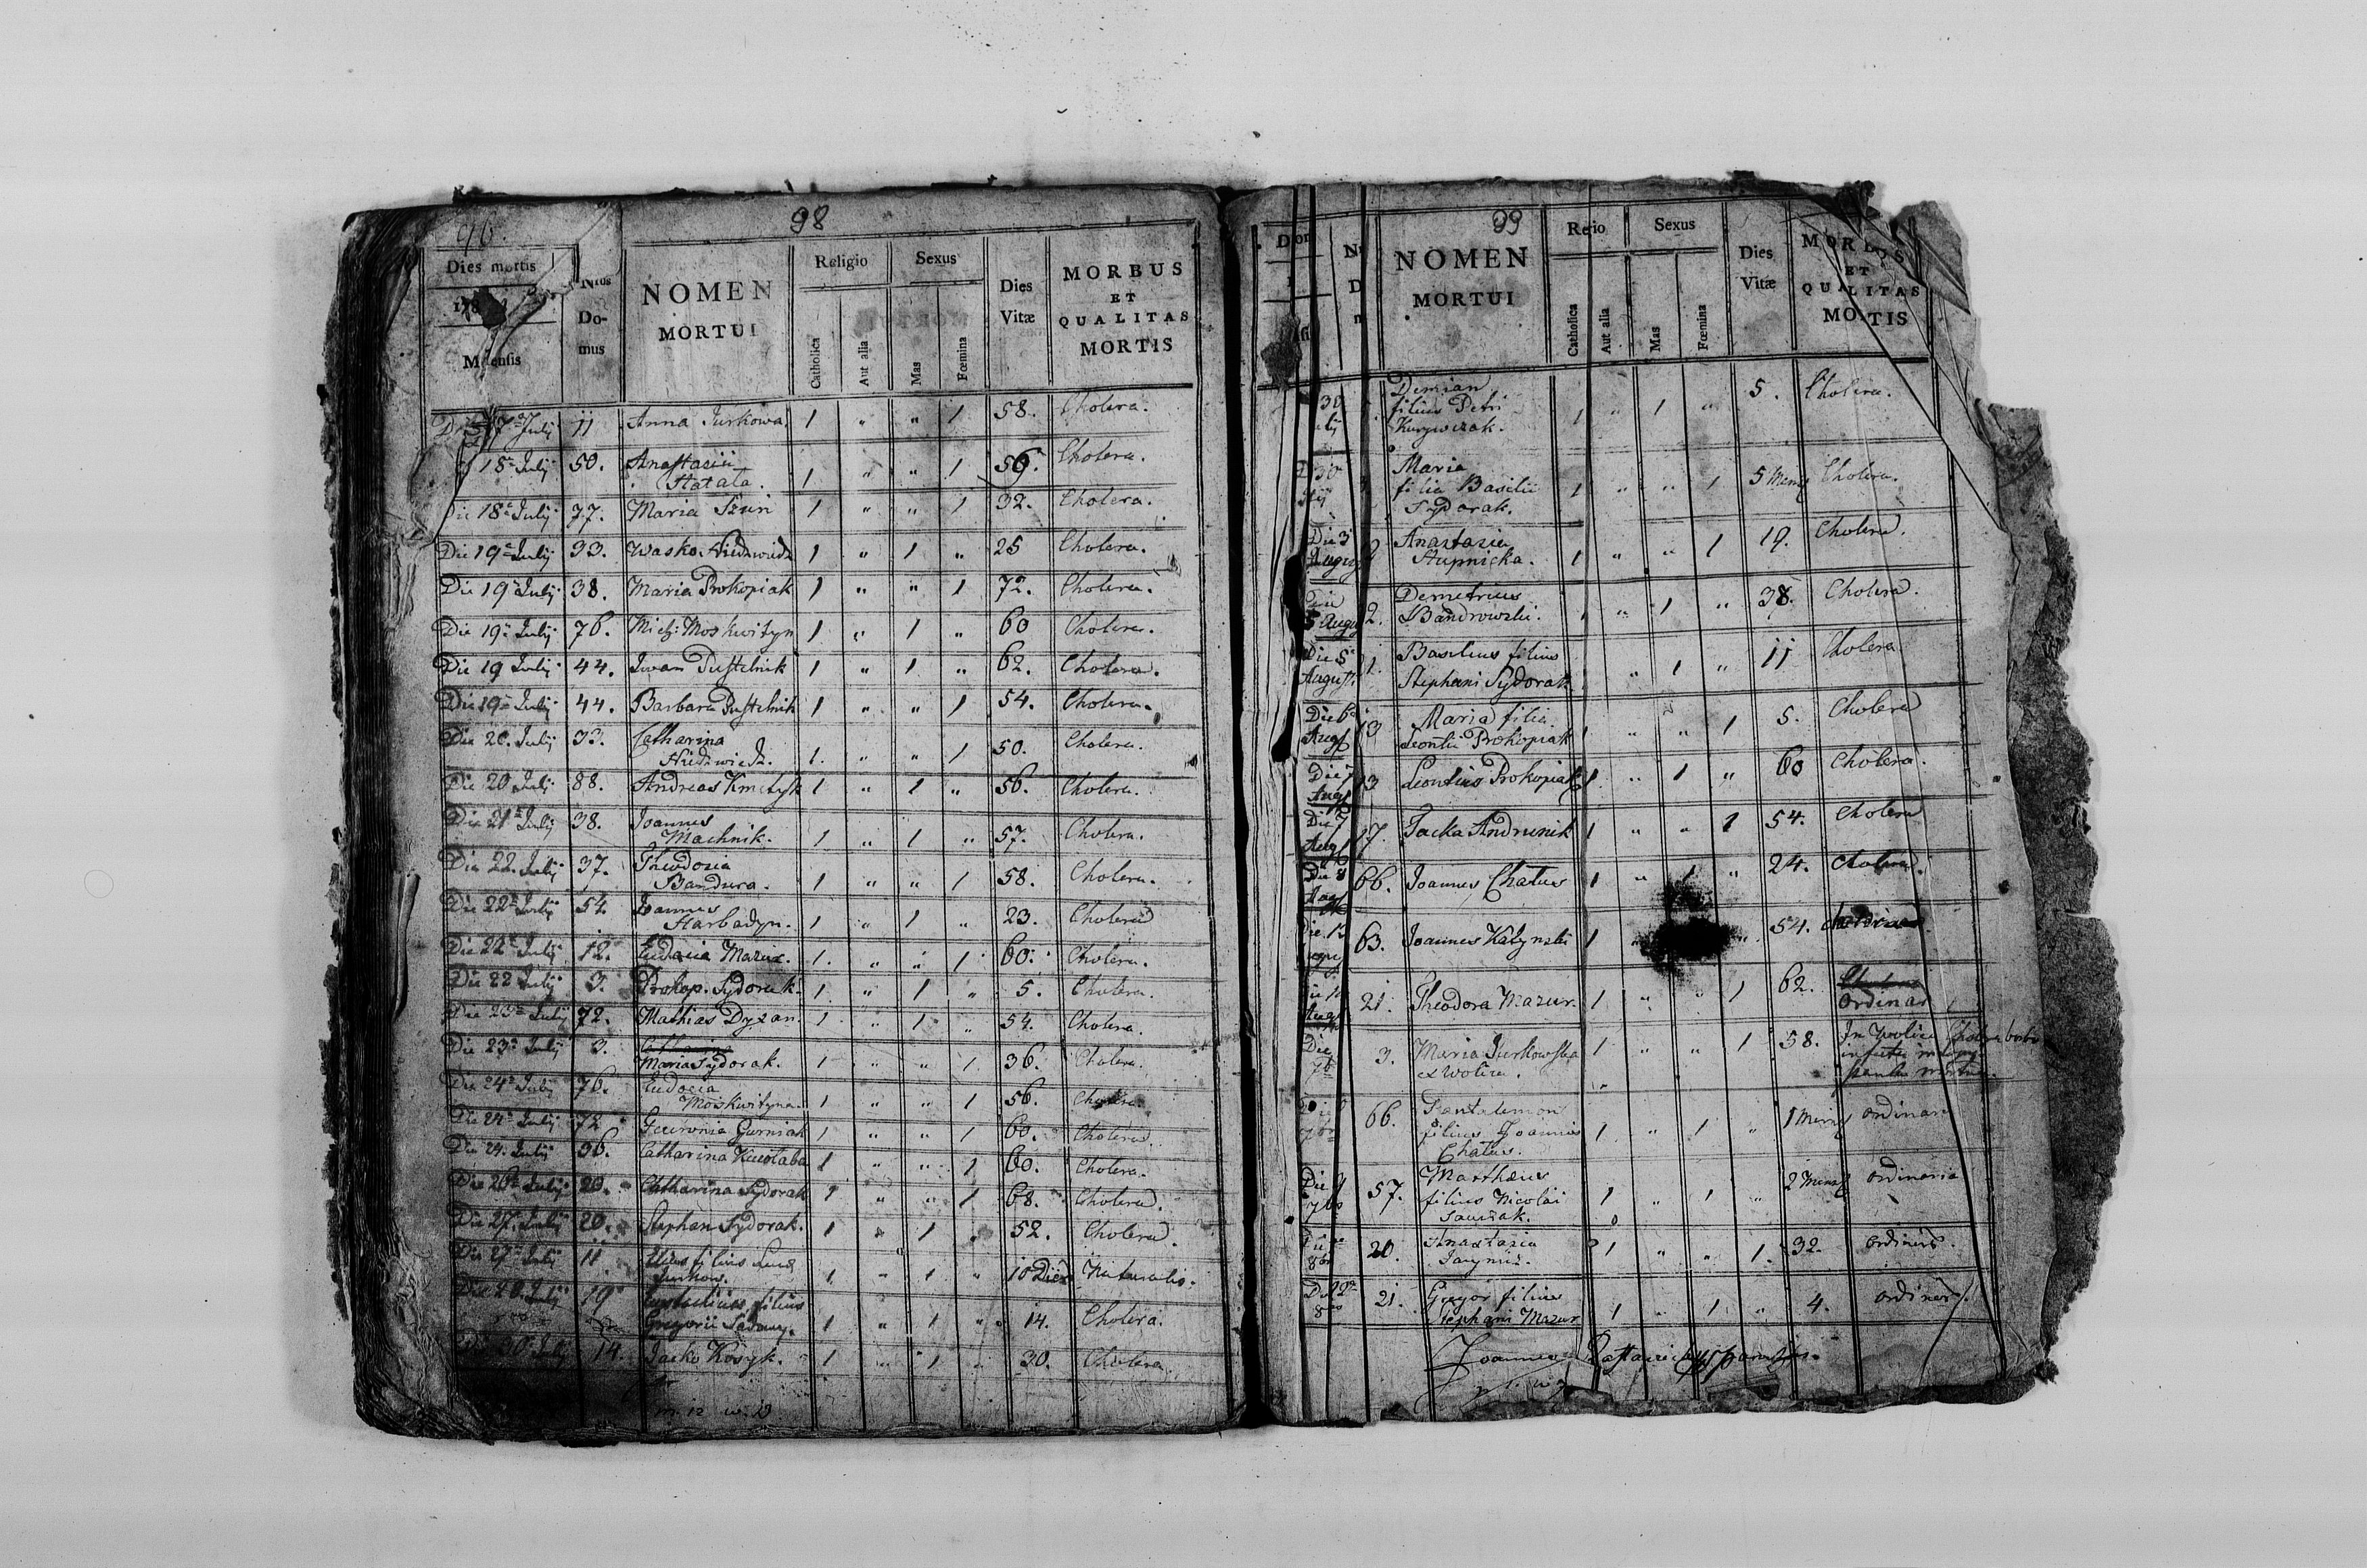 98
Dies mortis
Nrus Domus
NOMEN MORTUI
Religio
Catholica
Aut alia
Sexus
Mas
Fœmina
Dies Vitæ
MORBUS ET QUALITAS MORTIS
Mensis
Die 17a July 11 Anna Jurkowa 1 " " 1 58. Cholera.
18a July 50. Anastasia Hatala. 1 " " 1 56. Cholera.
Die 18a July 77. Maria Szuri 1 " " 1 32. Cholera.
Die 19a July 93. Wasko Niedzwiedz 1 " 1 " 25 Cholera.
Die 19a July 38. Maria Prokopiak 1 " " 1 72. Cholera.
Die 19a July 76. Mich: Moskwityn 1 " 1 " 60 Cholera.
Die 19 July 44. Iwan Pustelnik 1 " 1 " 62. Cholera.
Die 19a July 44. Barbara Pustelnik 1 " " 1 54. Cholera.
Die 20. July 93. Catharina Niedzwiedz. 1. " " 1 50. Cholera.
Die 20 July 88. Andreas Kmetyk 1 " 1 " 56. Cholera.
Die 21a July 38. Joannes Machnik. 1 " 1 " 57. Cholera.
Die 22. July 37. Theodosia Bandura. 1 " " 1 58. Cholera.
Die 22a July 54. Joannes Harbadyn. 1 " 1 " 23. Cholera
Die 22a July 12. Eudocia Mazur. 1. " " 1 60. Cholera.
Die 22 July 3. Prokop. Sydorak. 1 " 1 " 5. Cholera.
Die 23a July 72. Mathias Dyzan. 1 " 1 " 54. Cholera.
Die 23a July 3. Maria Sydorak. 1 " " 1 36. Cholera.
Die 24a July 76. Eudocia Moskwityna. 1 " " 1 56. Cholera.
Die 24a July 72 Gurniak 1 " " 1 60. Cholera.
Die 24. July 36. Catharina 1 " " 1 60. Cholera.
Die 26a July 20. Catharina Sydorak 1 " " 1 68. Cholera.
Die 27. July 20. Stephan Sydorak. 1 " 1 " 52. Cholera.
Die 27a July 11 filius Jurkow. 1 " 1 " 10 Dies Naturalis.
Die 28. July 19 Eustachius filius Gregorii 1 " 1 " 14. Cholera.
Die 30 July 14. Jacko Kosyk. 1 " 1 " 30. Cholera.
99
NOMEN MORTUI
Catholica
Aut alia
Sexus
Mas
Fœmina
Dies Vitæ
MORBUS ET QUALITAS MORTIS
30 Demian
filius Petri
1 " 1 " 5. Cholera.
30 Maria
filia Basilii
Sydorak.
1 " " 1 5 Mens Cholera.
Die 3 August Anastasia Stupnicka. 1 " " 1 19. Cholera.
Die 5 Augu 2. Demetrius Bandrowski. 1 " 1 " 38. Cholera.
Die 5 August 1. Basilius filius
Stephani Sydorak 1 " 1 " 11 Cholera
Die 6a Aug 13 Maria filia
Leontii Prokopiak 1 " " 1 5. Cholera
Die 7 Aug 13 Leontius Prokopiak 1 " 1 " 60 Cholera.
Die 7 Aug 17. Jacka Andrunik 1 " " 1 54. Cholera
Die 8 Aug 66. Joannes Chatus 1 " 1 " 24. Cholera.
Die 13 63. Joannes Katynski 1 " 54.
Aug 21. Theodora Mazur. 1 " " 1 62. ordinar
Die 7b 3. Maria Jurkowska
ex Wolica. 1 " " 1 58. In Wolica
66. Pantalemon
filius Joannis
Chatus. 1 " 1 " 1 Mens ordinar
Die 9 7bris 57. Matthæus
filius Nicolai
1 " 1 " 2 Mens ordinaria
8bris 20. Anastasia 1 " " 1. 32. ordinar.
Die 12a 8bris 21. Gregor filius
Stephani Mazur 1 " 1 " 4. ordinar.
Joannes